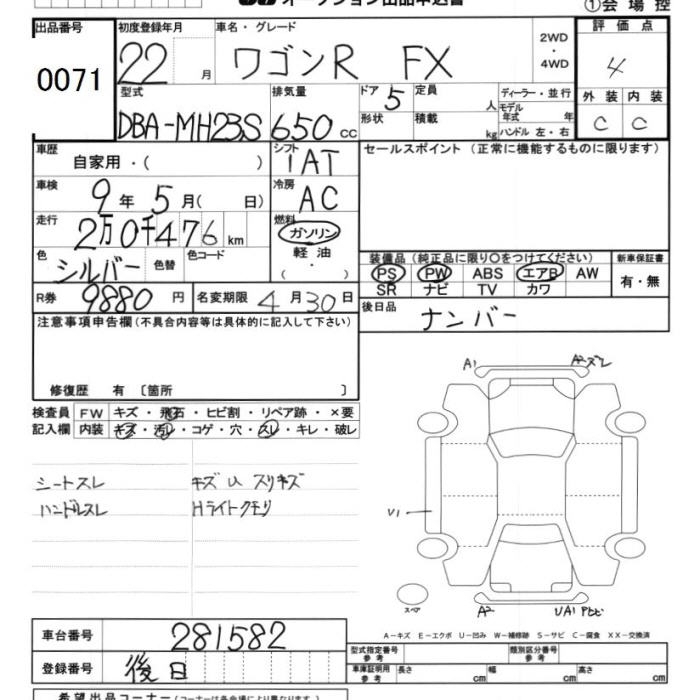 オークション出品申込書
①会場控
出品番号 初度登録年月 車名・グレード 2WD・4WD 評価点
0071 22 月 ワゴンR FX 4
型式 排気量 ドア 5 定員 人 ディーラー・並行 外装 内装
DBA-MH23S 650 cc 形状 積載 kg モデル年式 年 ハンドル 左・右 C C
車歴 自家用・( ) シフト IAT セールスポイント(正常に機能するものに限ります)
車検 9年 5月( 日) 冷房 AC
走行 2万0千476 km 燃料 ガソリン
色 シルバー 色替 色コード 軽油 ( ・ )
装備品(純正品に限り〇をつけてください) 新車保証書
PS PW ABS エアB AW 有・無
SR ナビ TV カワ
R券 9880 円 名変期限 4月30日 後日品 ナンバー
注意事項申告欄(不具合内容等は具体的に記入して下さい)
修復歴 有 〔箇所 〕
検査員 FW キズ・飛石・ヒビ割・リペア跡・×要
記入欄 内装 キズ・汚レ・コゲ・穴・スレ・キレ・破レ
シートスレ キズ U スリキズ
ハンドルスレ Hライトクモリ
A1 A2スレ
U1
スペア A2 UA1
A-キズ E-エクボ U-凹み W-補修跡 S-サビ C-腐食 XX-交換済
車台番号 281582
型式指定番号 参考 類別区分番号 参考
登録番号 後日
車庫証明用 参考 長さ cm 幅 cm 高さ cm
希望出品コーナー(コーナーは各会場により異なります)